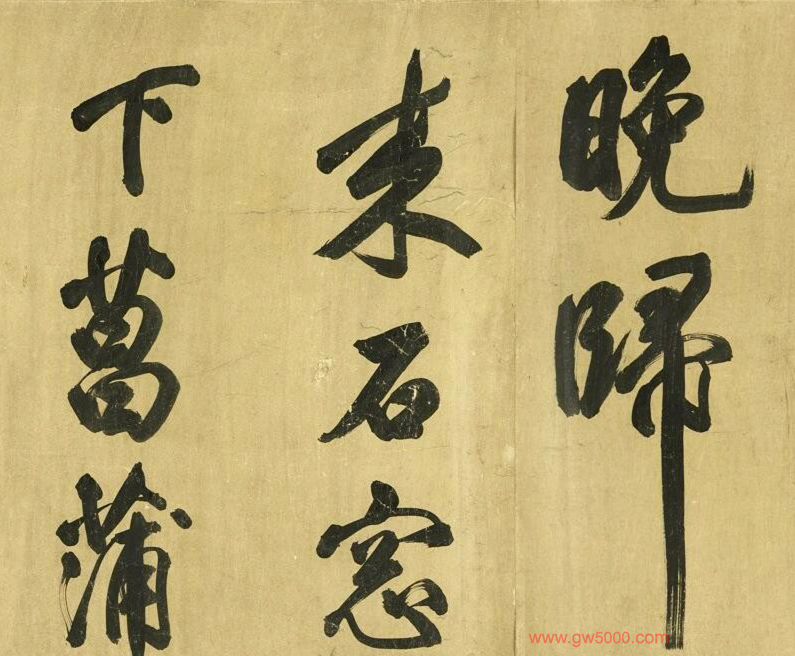 晚歸
来石窓
下菖蒲
www.gw5000.com